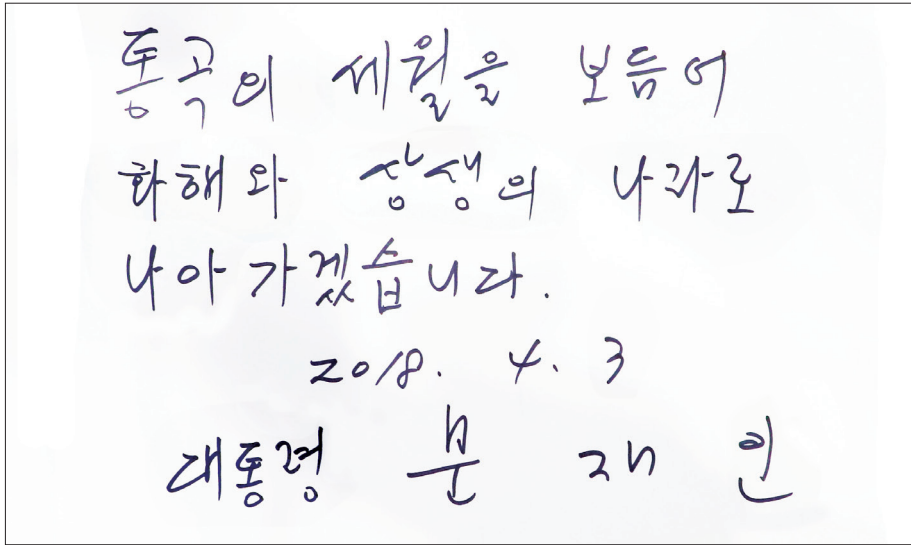 통곡의 세월을 보듬어
화해와 상생의 나라로
나아가겠습니다.
2018. 4. 3
대통령 문 재 인